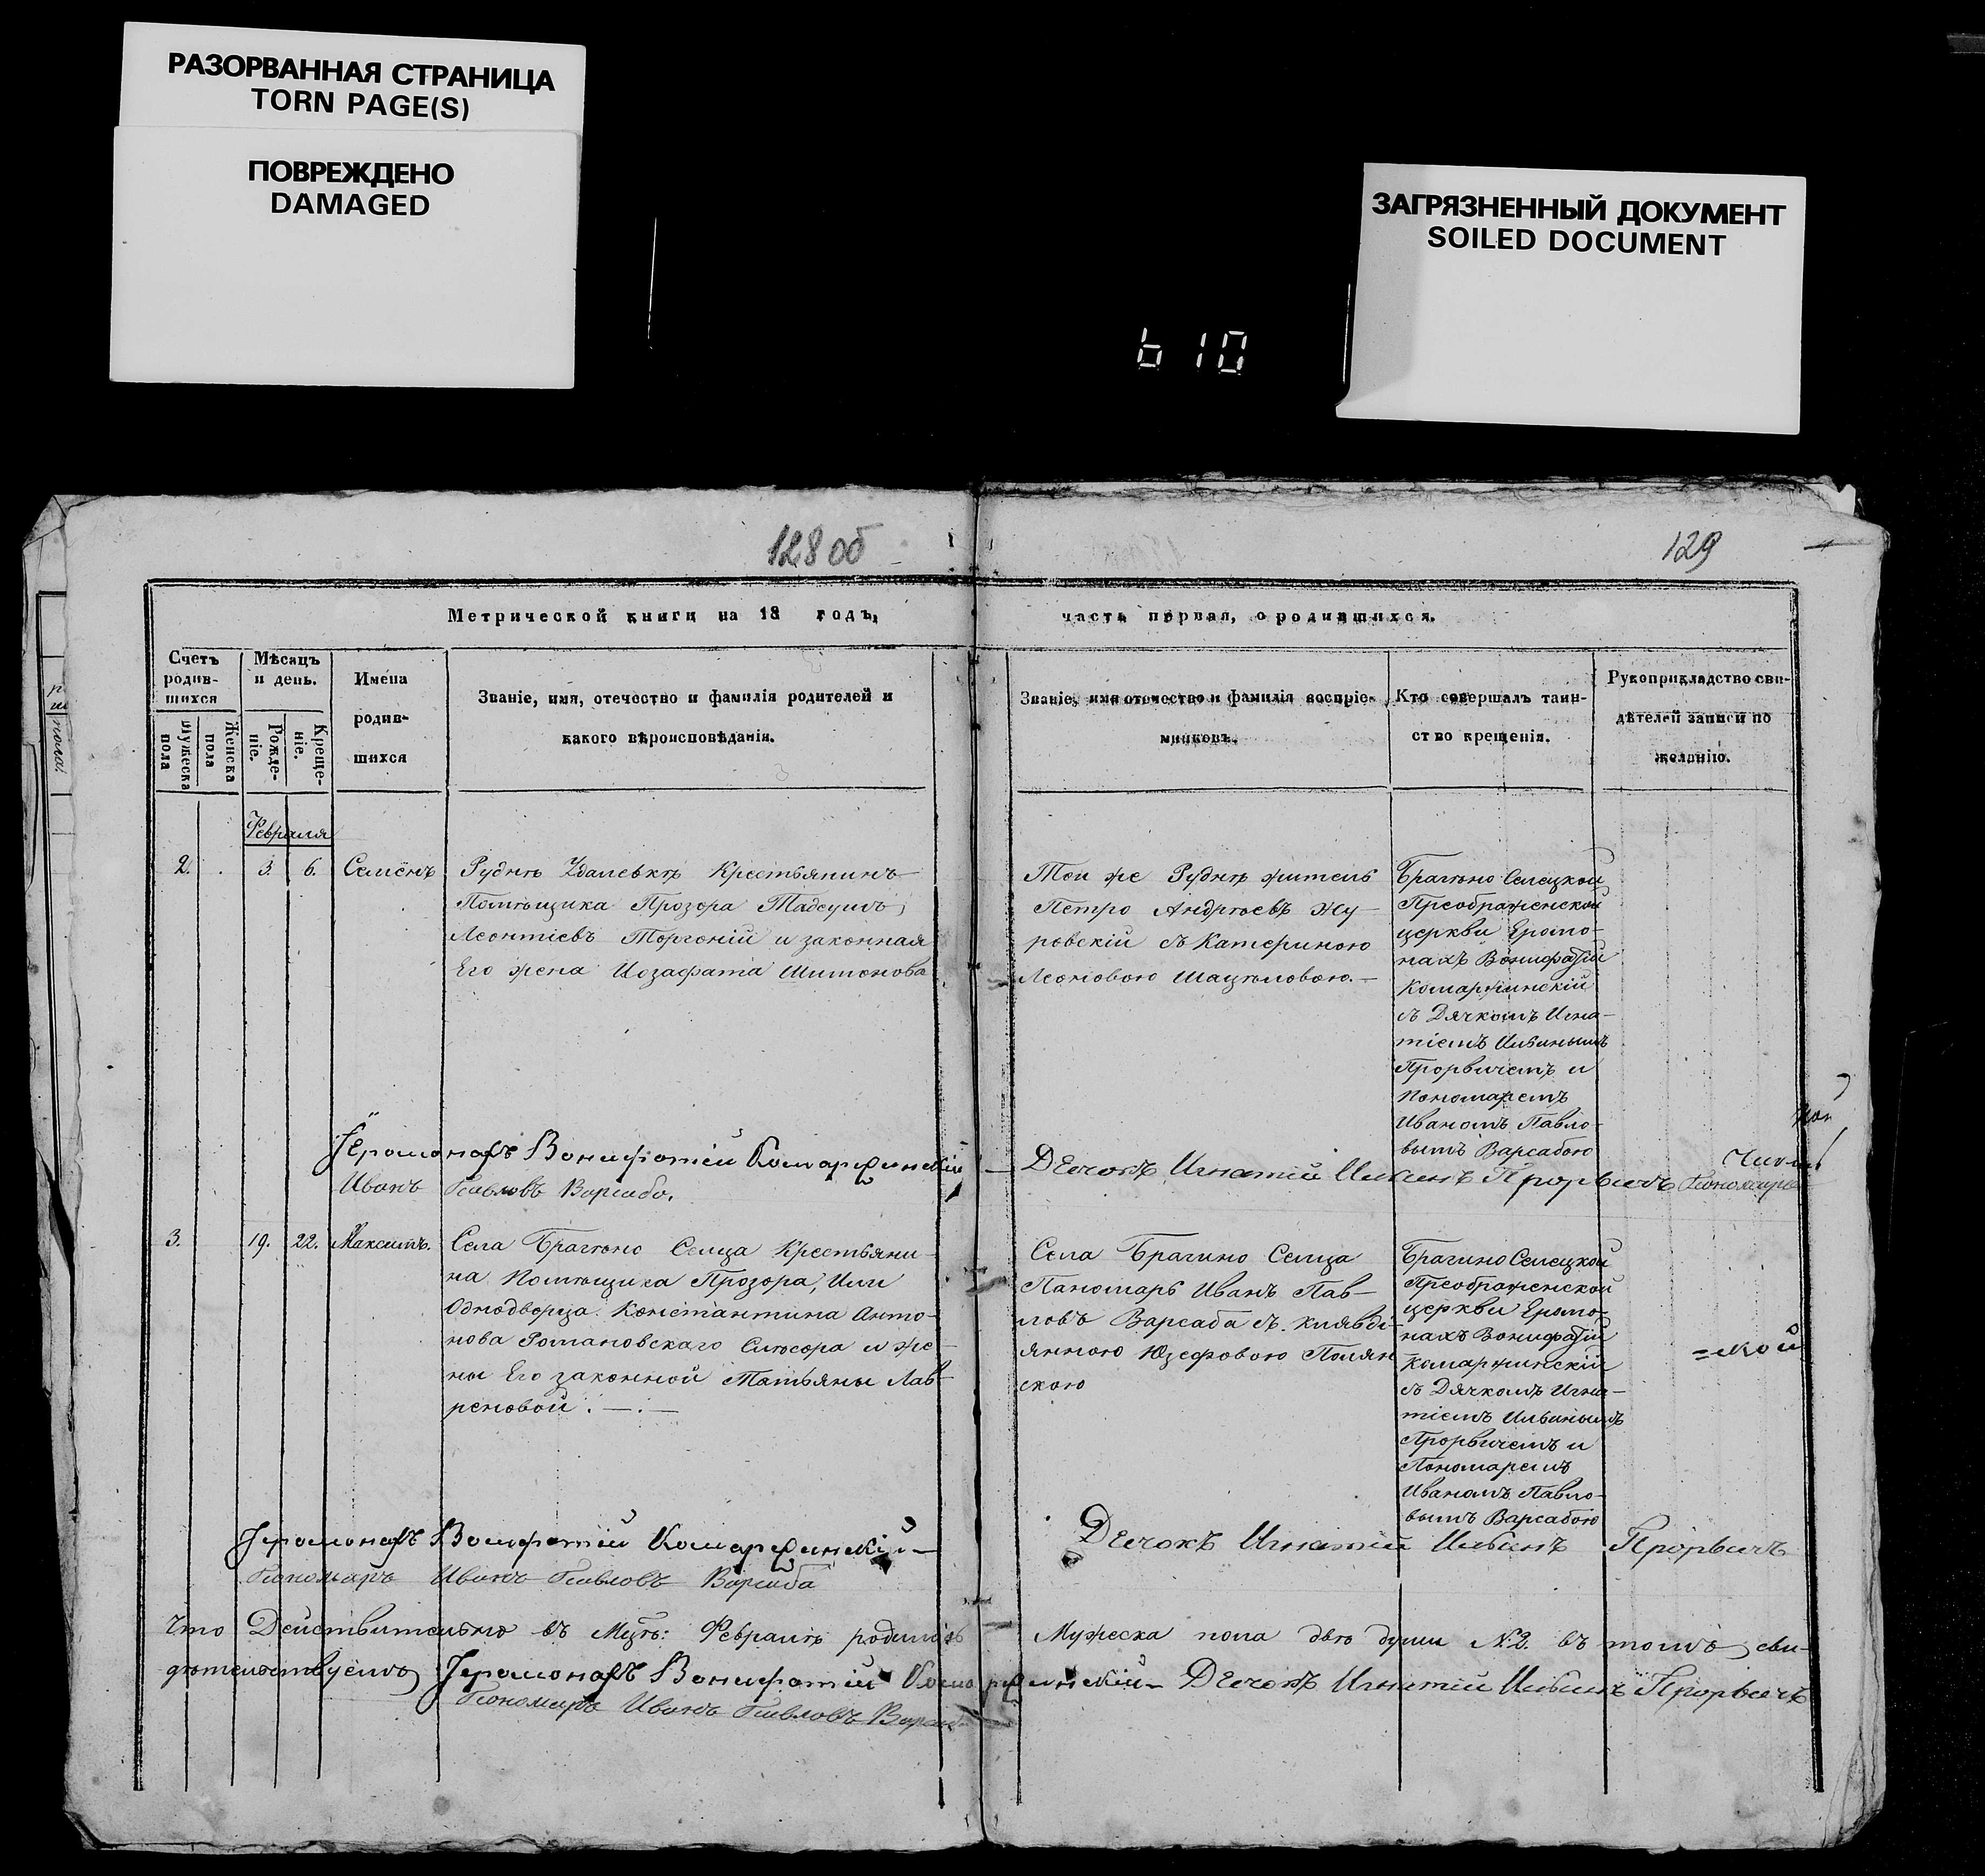 РАЗОРВАННАЯ СТРАНИЦА
TORN PAGE(S)
ПОВРЕЖДЕНО
DAMAGED
ЗАГРЯЗНЕННЫЙ ДОКУМЕНТ
SOILED DOCUMENT
610
128 об
129
Метрической книги на 18 годъ,
часть первая, о родившихся.
Счетъ родив-шихся
Мужеска пола
Женска пола
Мѣсацъ и день.
Рожде-ніе.
Креще-ніе.
Имена родив-шихся
Званіе, имя, отечество и фамилія родителей и
какого вѣроисповѣданія.
Званіе, имя отечество и фамилія воспріе-
мниковъ.
Кто совершалъ таин-
ство крещенія.
Рукоприкладство сви-
дѣтелей записи по
желанію.
Февраля
2. 3. 6. Семёнъ
Руднѣ Удалевкѣ Крестьянинъ
Помѣщика Прозора Тадеушъ
Леонтіевъ Торгоній и законная
Его жена Иозафата Шимонова
Той же Руднѣ житель
Петро Андрѣевъ Жу-
ровскій съ Катериною
Леоновою Шацыловою.
Брагыно Селецкой
Преображенской
церкви Еромо-
нахъ Вонифатій
Комаржинскій
съ Дячкомъ Игна-
тіемъ Ильинымъ
Прорвичемъ и
Пономаремъ
Иваномъ Павло-
вымъ Варсабою
Іеромонахъ Вонифатій Комаржинскій
Дьячокъ Игнатій Ильинъ Прорвичъ Пономарь
Иванъ Павловъ Варсаба.
3. 19. 22. Максимъ.
Села Брагыно Селца Крестьяни-
на Помѣщика Прозора, Или
Однодворца Константина Анто-
нова Романовскаго Слюсора и же-
ны Его законной Татьяны Лав-
реновой.
Села Брагино Селца
Паномарь Иванъ Пав-
ловъ Варсаба съ
Юзефовою Полян
скою
Брагино Селецкой
Преображенской
церкви Еромо-
нахъ Вонифатій
Комаржинскій
съ Дячкомъ Игна-
тіемъ Ильинымъ
Прорвичемъ и
Пономаремъ
Иваномъ Павло-
вымъ Варсабою
=ской
Іеромонахъ Вонифатій Комаржинскій
Дьячокъ Игнатій Ильинъ Прорвичъ
Пономарь Иванъ Павловъ Варсаба
Что Действительно въ Мцѣ: Февралѣ родилось
Мужеска пола двѣ души №2. въ томъ сви-
дѣтельствуемъ Іеромонахъ Вонифатій Комаржинскій Дьячокъ Игнатій Ильинъ Прорвичъ
Пономарь Иванъ Павловъ Варсаба